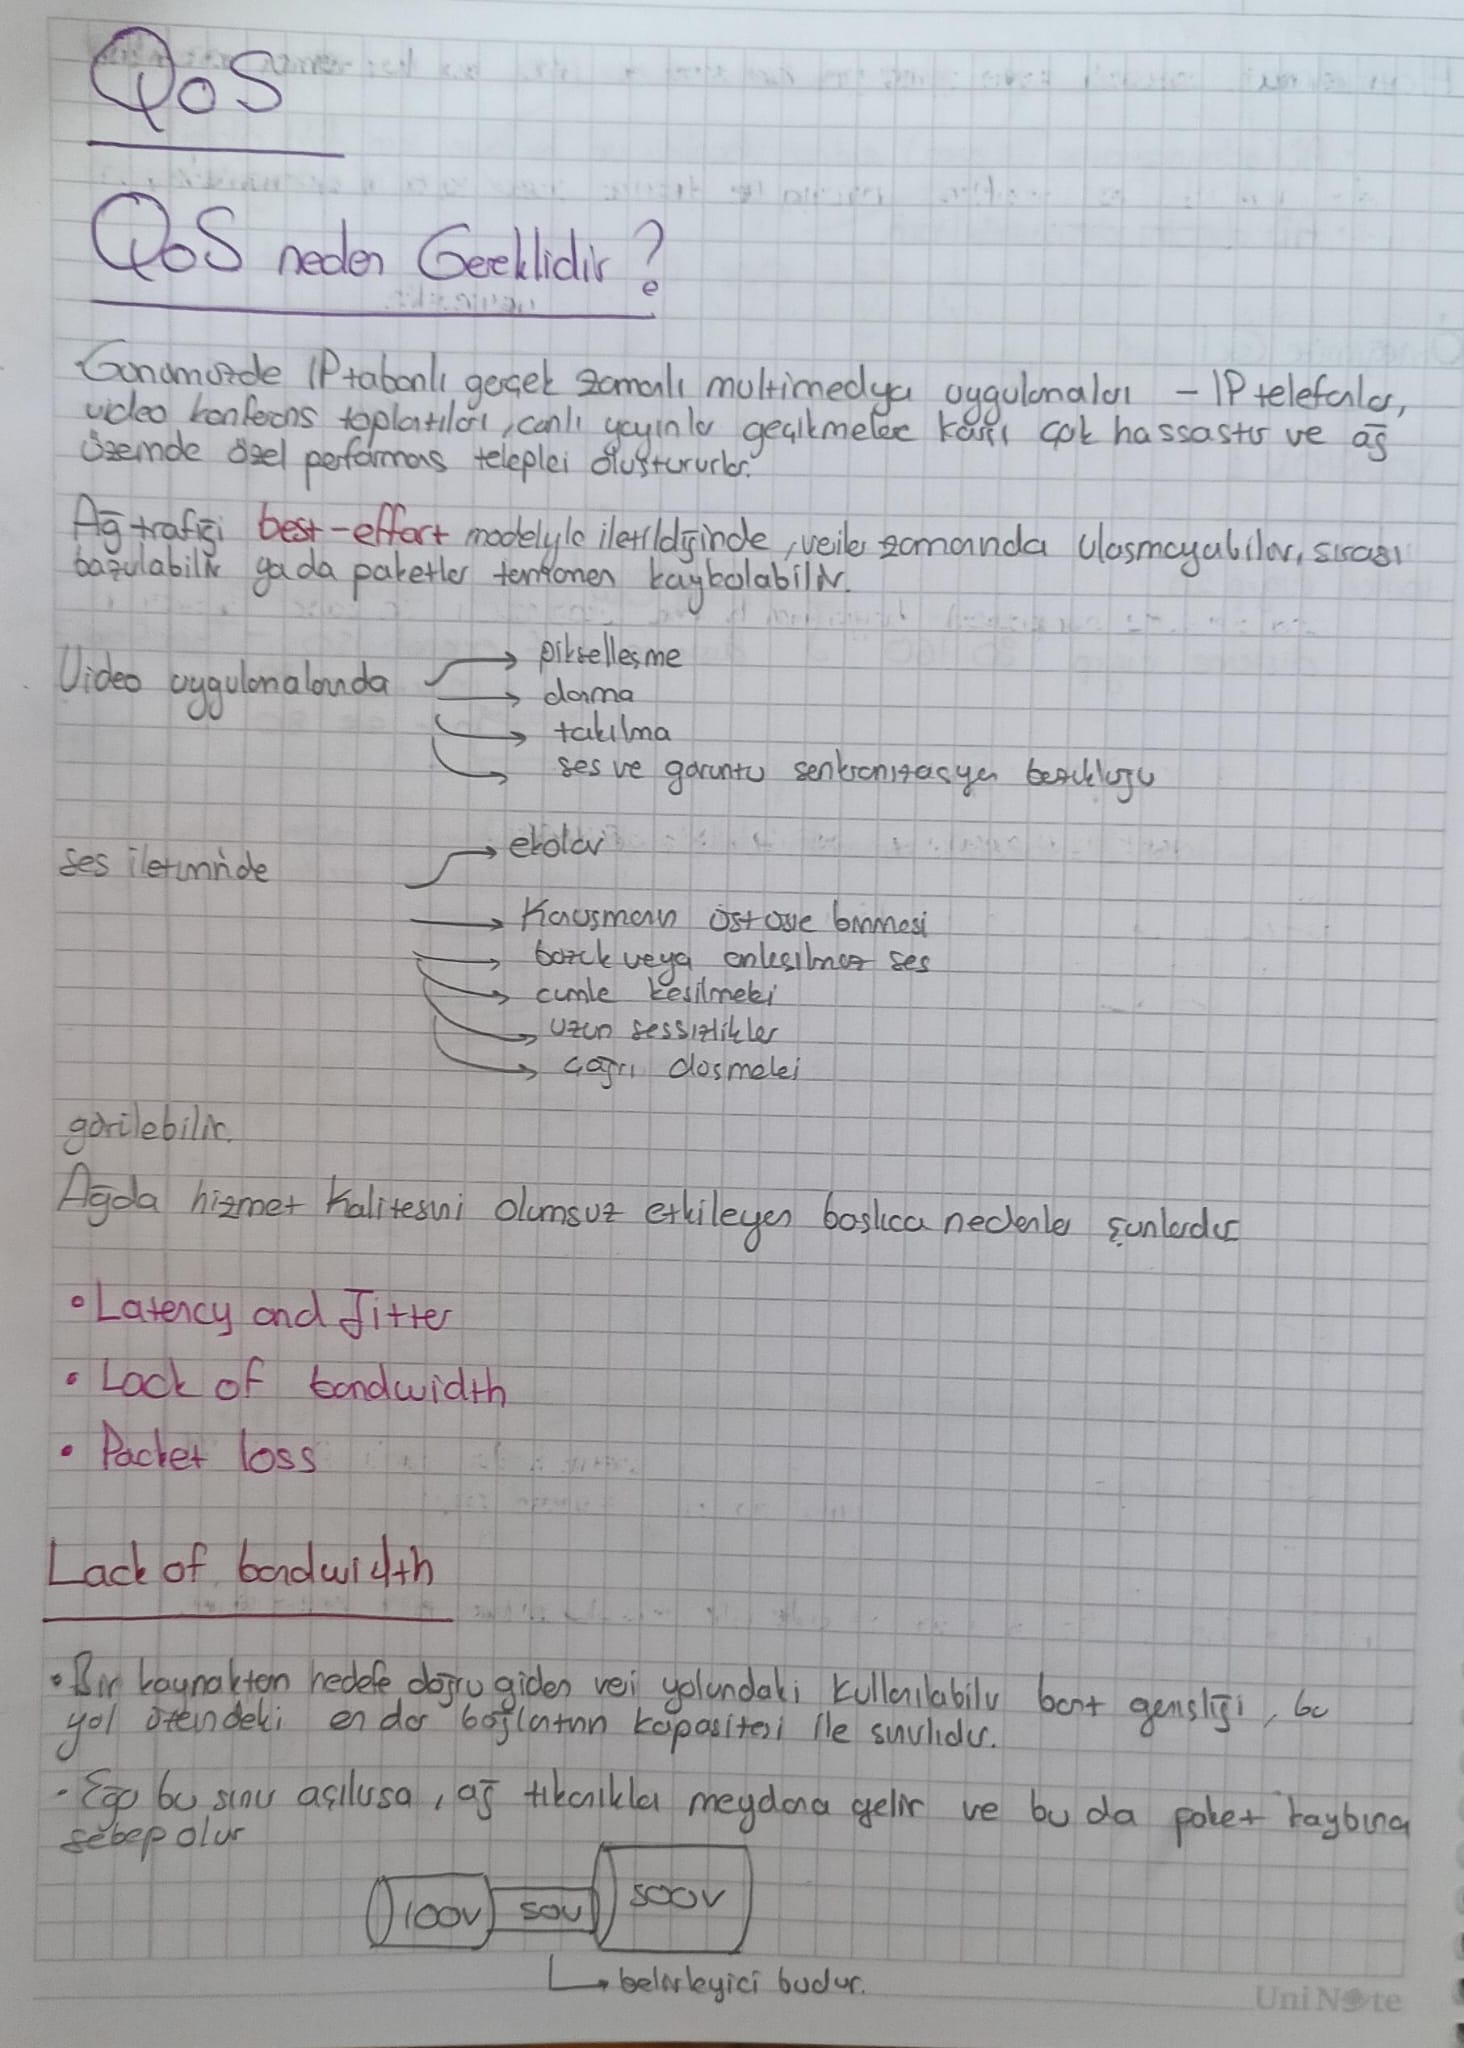 QoS
QoS neden Gereklidir?
Günümüzde IP tabanlı gerçek zamanlı multimedya uygulamaları - IP telefonlar,
video konferans toplantıları, canlı yayınlar geçikmelere karşı çok hassastır ve ağ
üzerinde özel performans talepleri oluştururlar.
Ağ trafiği best-effort modelyle iletildiğinde, veriler zamanında ulaşmayabilir, sırası
bozulabilir yada paketler tamamen kaybolabilir.
Video uygulamalarında
pikselleşme
donma
takılma
ses ve görüntü senkronizasyon bozukluğu
ses iletiminde
ekolar
Konuşmanın üst üste binmesi
bozuk veya anlaşılmaz ses
cümle kesilmeleri
uzun sessizlikler
çağrı düşmeleri
görülebilir.
Ağda hizmet kalitesini olumsuz etkileyen başlıca nedenler şunlardır
• Latency and Jitter
• Lack of bandwidth
• Packet loss
Lack of bandwidth
• Bir kaynaktan hedefe doğru giden veri yolundaki kullanılabilir bant genişliği, bu
yol üzerindeki en dar bağlantının kapasitesi ile sınırlıdır.
• Eğer bu sınır aşılırsa, ağ tıkanıklar meydana gelir ve bu da paket kaybına
sebep olur
100v 50v 500v
belirleyici budur.
UniNote